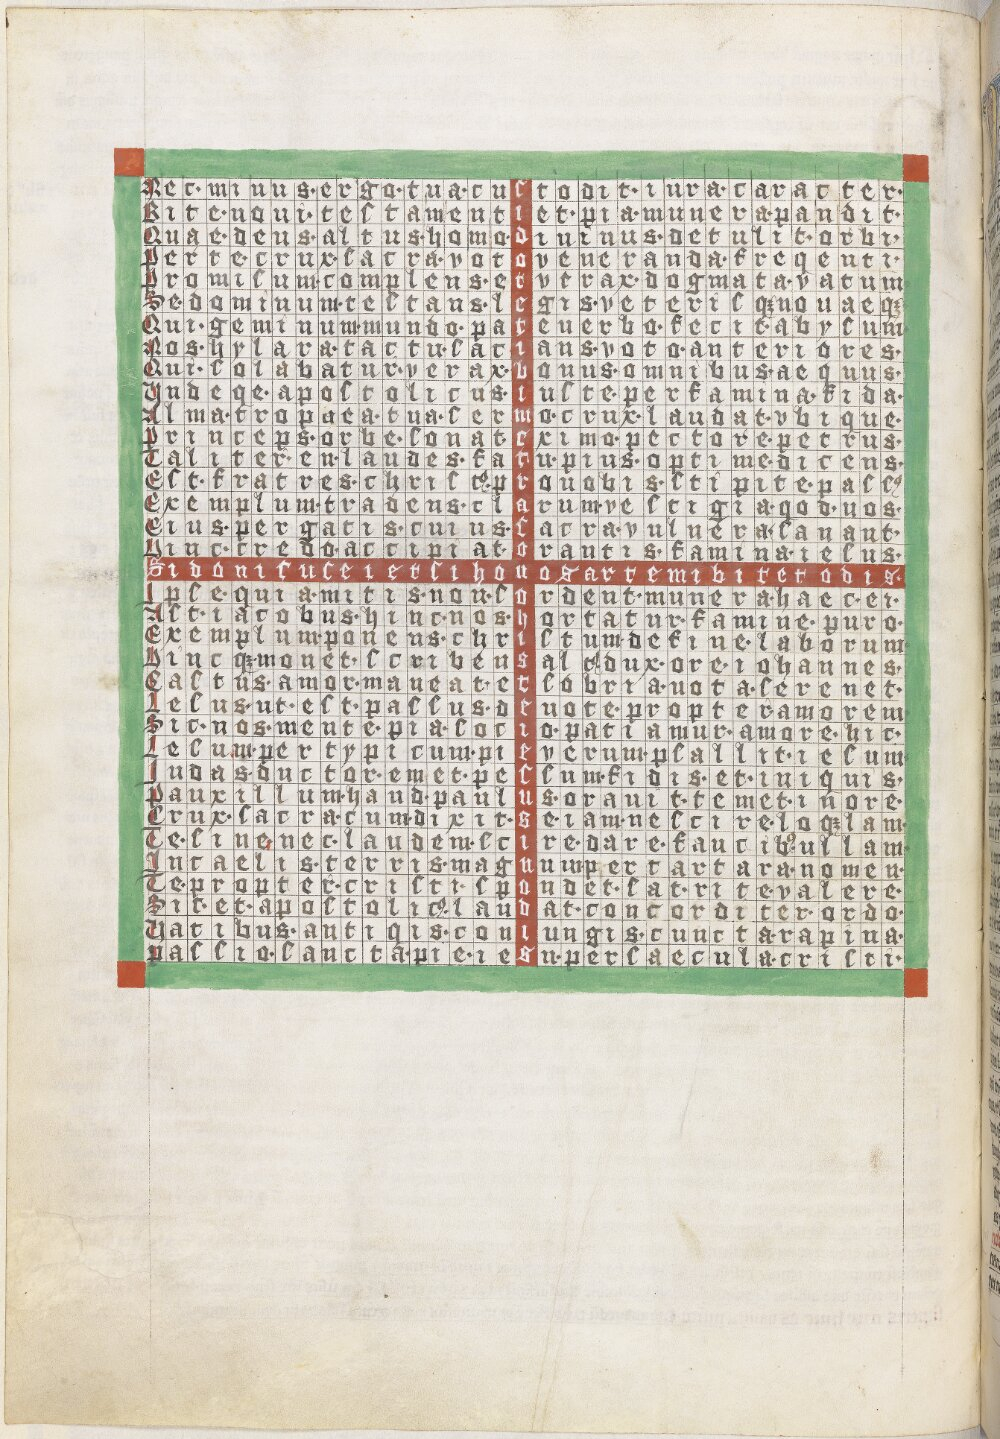 Nec· minus· ergo· tua· cuctodit· iura· caracter·
Rite· noui· testamentiet· pia· munera pandit·
Quae· deus· altus· homo· diuinus· detulit· orbi·
Per te· crux· sacra· voto veneranda frequenti·
Promisum· complens· et vtrax· dogmata· vatum
Sed ominum· testans· legis· veteris qꝫ nouaeqꝫ
Qui· geminum mundo· pate uerbo· fecit· abysum
Nos· hylarat· actu· sacians· voto· anteriores·
Qui· solabatur· verax· bonus· omnibus· aequus·
Yndeqe· apostolicus· iuste per famina· fida·
Alma· tropaea· tua· sermo· crux· laudat· vbique·
Princeps· orbe· sonat· eximo· pectore· petrus·
Taliter· en· laudes· fatu· pius· optime dicens·
Est· fratres· christꝰ· pro uobis· stipite· passꝰ
Exemplum· tradens· clarum vestigia qod· nos·
Eius· pergatis· cuius· sacra vulnera· sanant·
Hinc· credo· accipiat· orantis· famina· iesus·
Sidonisuceietsihonosartemibitetodis·
Ipse· qui amitis· non· sordent· munera haec· ei·
Ast· iacobus· hinc· nos· hortatur· famine· puro·
Exemplum· ponens· christum· define· laborum
Hincqꝫ· monet· scribens alꝰ dux· ore· iohannes
Castus· amor· maneat· et sobria uota· serenet·
Iesus· ut· est· passus· deuote· propter· amorem
Sic· nos· mente· pia· socio· patiamur· amore· hic·
Iesum· per typicum· pie verum· psallit· iesum
Iudas· ductor· emet· pessum· fidis· et· iniquis·
Pauxillum· haud· paulus· orauit· temet· inore·
Crux· sacra cum dixit· seiam· nescire· loqꝫlam·
Te· sine· nec· laudem· scire· dare· faucibꝰ ullam
In caelis· terris· magnum per tartara· nomen·
Te· propter· cristi· spondet· sat· rite· valere·
Sit· et· apostolicꝰ· laudat· concorditer· ordo·
Vatibus· antiqis· coniungis· cuncta· rapina·
Passio· sancta· pie· iesu· per saecula· cristi·